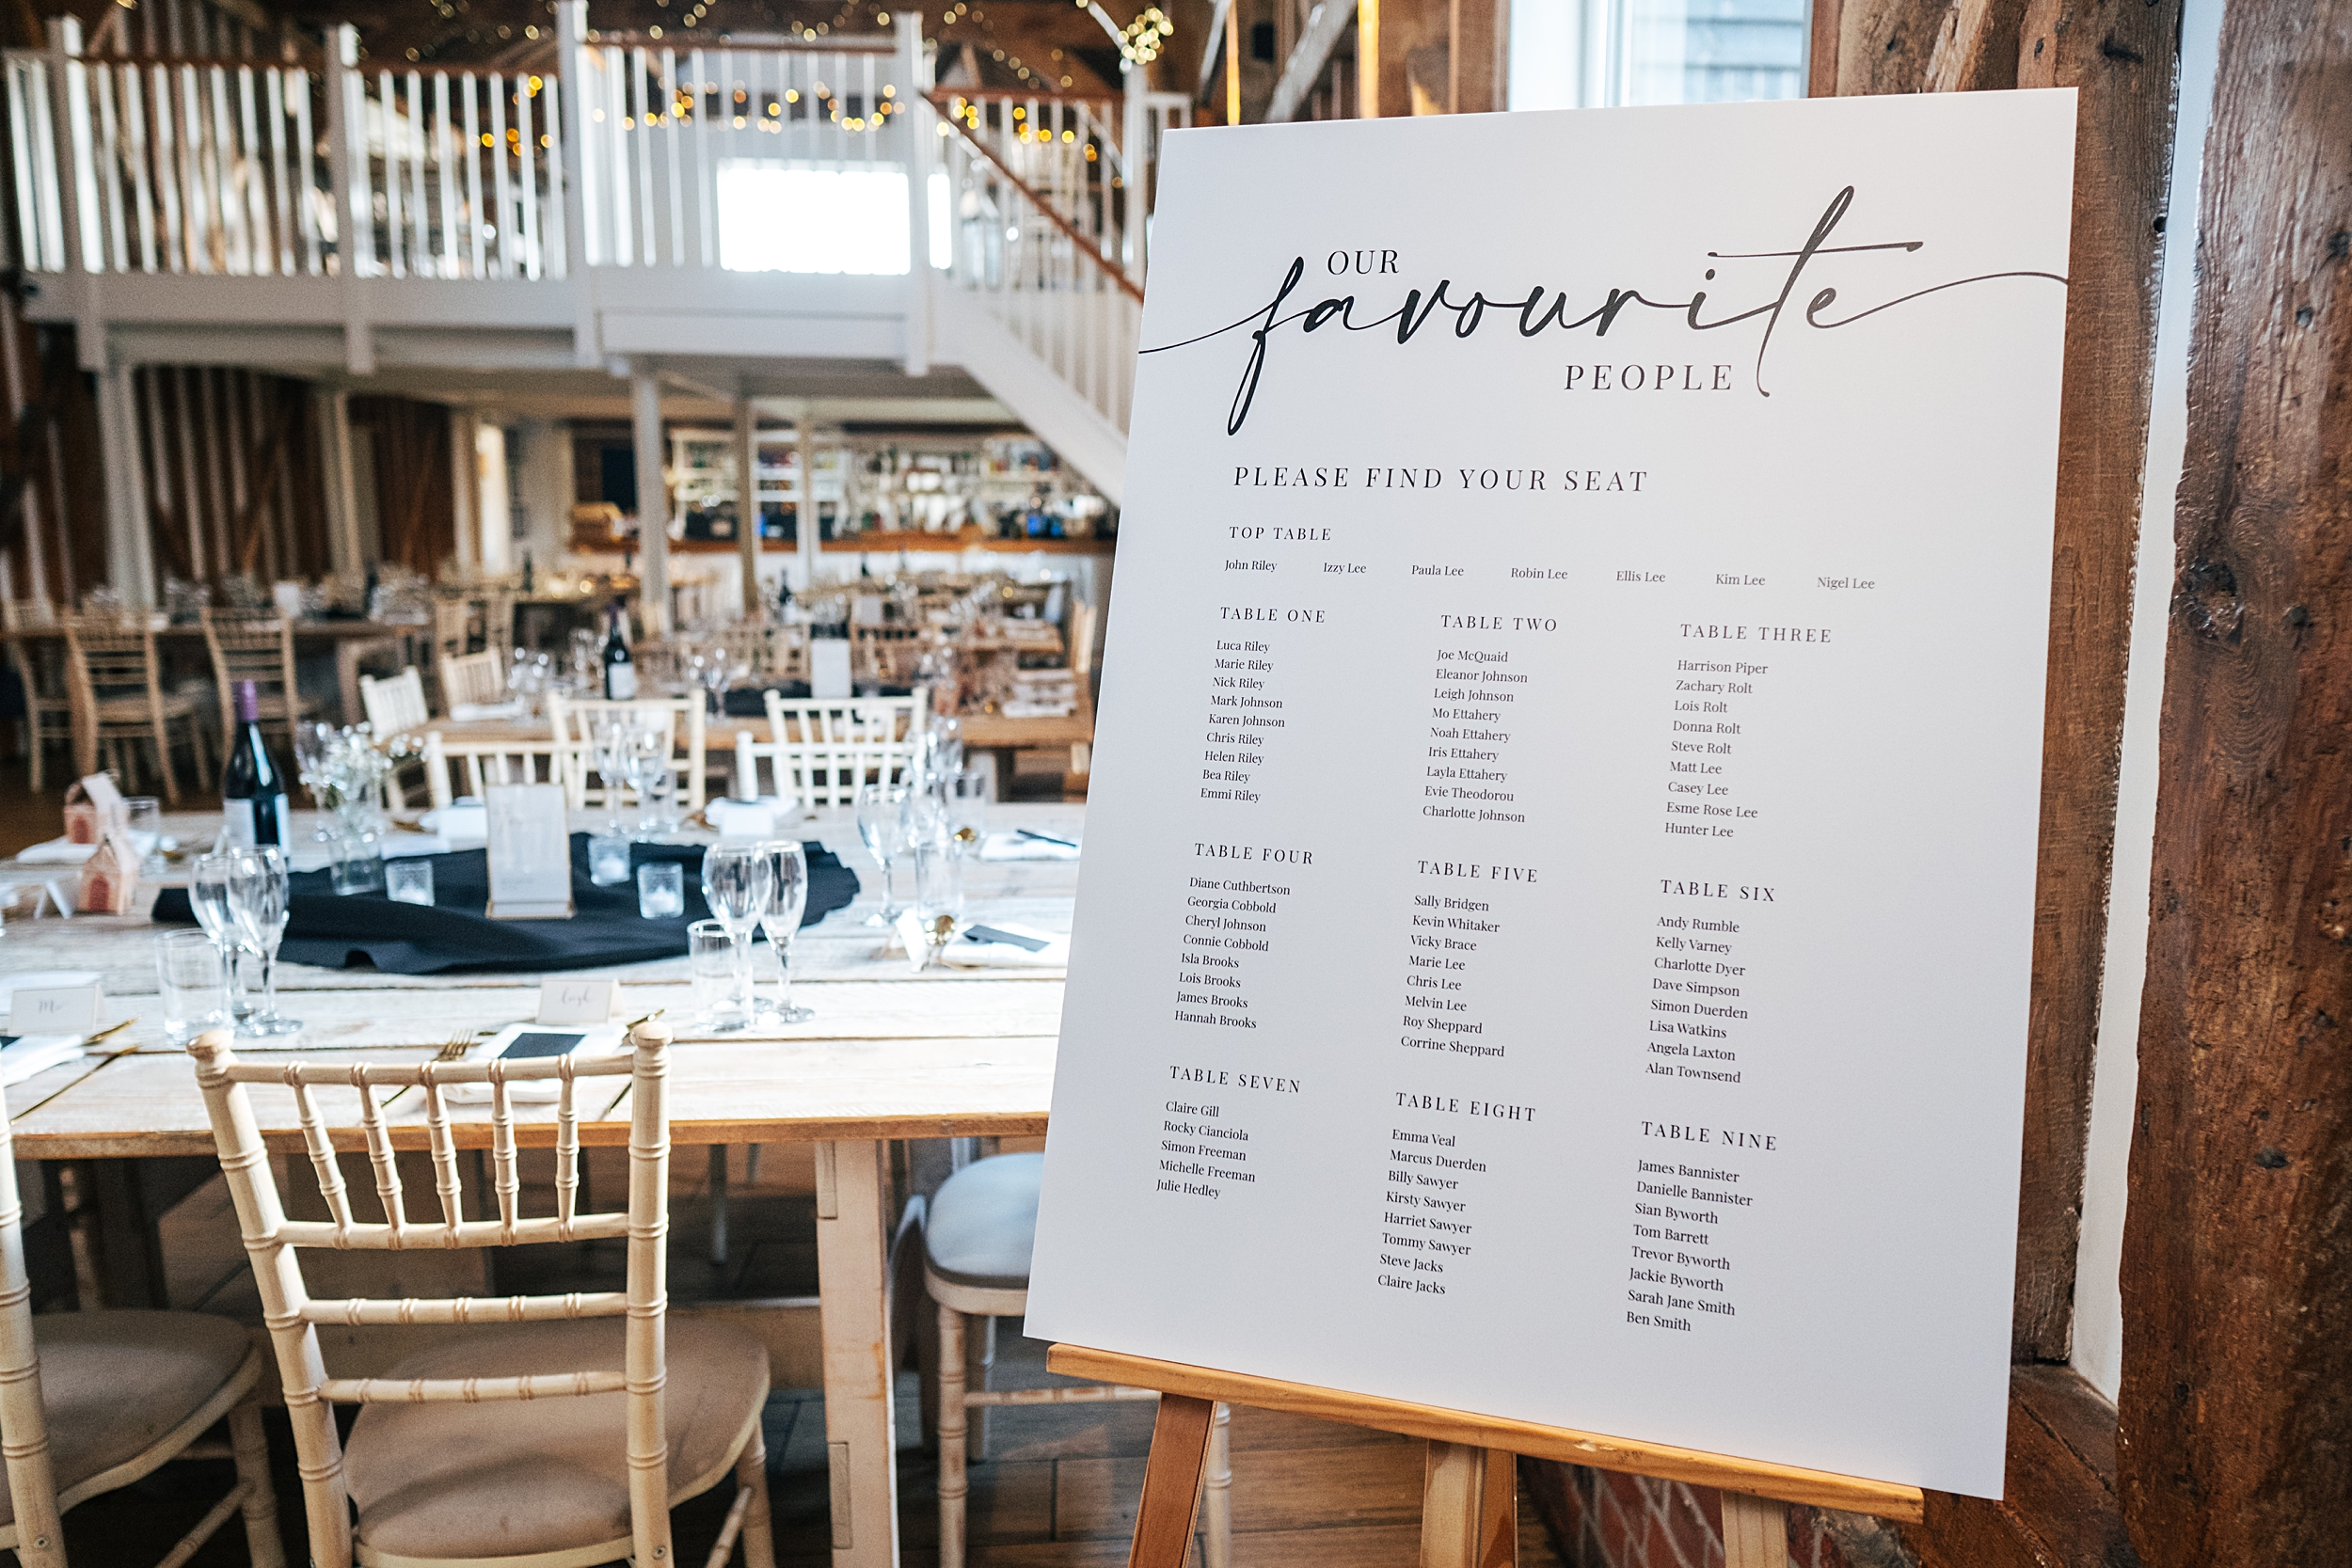 OUR
favourite
PEOPLE
PLEASE FIND YOUR SEAT
TOP TABLE
John Riley Izzy Lee Paula Lee Robin Lee Ellis Lee Kim Lee Nigel Lee
TABLE ONE
Luca Riley
Marie Riley
Nick Riley
Mark Johnson
Karen Johnson
Chris Riley
Helen Riley
Bea Riley
Emmi Riley
TABLE TWO
Joe McQuaid
Eleanor Johnson
Leigh Johnson
Mo Ettahery
Noah Ettahery
Iris Ettahery
Layla Ettahery
Evie Theodorou
Charlotte Johnson
TABLE THREE
Harrison Piper
Zachary Rolt
Lois Rolt
Donna Rolt
Steve Rolt
Matt Lee
Casey Lee
Esme Rose Lee
Hunter Lee
TABLE FOUR
Diane Cuthbertson
Georgia Cobbold
Cheryl Johnson
Connie Cobbold
Isla Brooks
Lois Brooks
James Brooks
Hannah Brooks
TABLE FIVE
Sally Bridgen
Kevin Whitaker
Vicky Brace
Marie Lee
Chris Lee
Melvin Lee
Roy Sheppard
Corrine Sheppard
TABLE SIX
Andy Rumble
Kelly Varney
Charlotte Dyer
Dave Simpson
Simon Duerden
Lisa Watkins
Angela Laxton
Alan Townsend
TABLE SEVEN
Claire Gill
Rocky Cianciola
Simon Freeman
Michelle Freeman
Julie Hedley
TABLE EIGHT
Emma Veal
Marcus Duerden
Billy Sawyer
Kirsty Sawyer
Harriet Sawyer
Tommy Sawyer
Steve Jacks
Claire Jacks
TABLE NINE
James Bannister
Danielle Bannister
Sian Byworth
Tom Barrett
Trevor Byworth
Jackie Byworth
Sarah Jane Smith
Ben Smith
Mo
Leigh